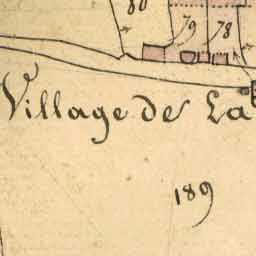 80
79 78
Village de La
189